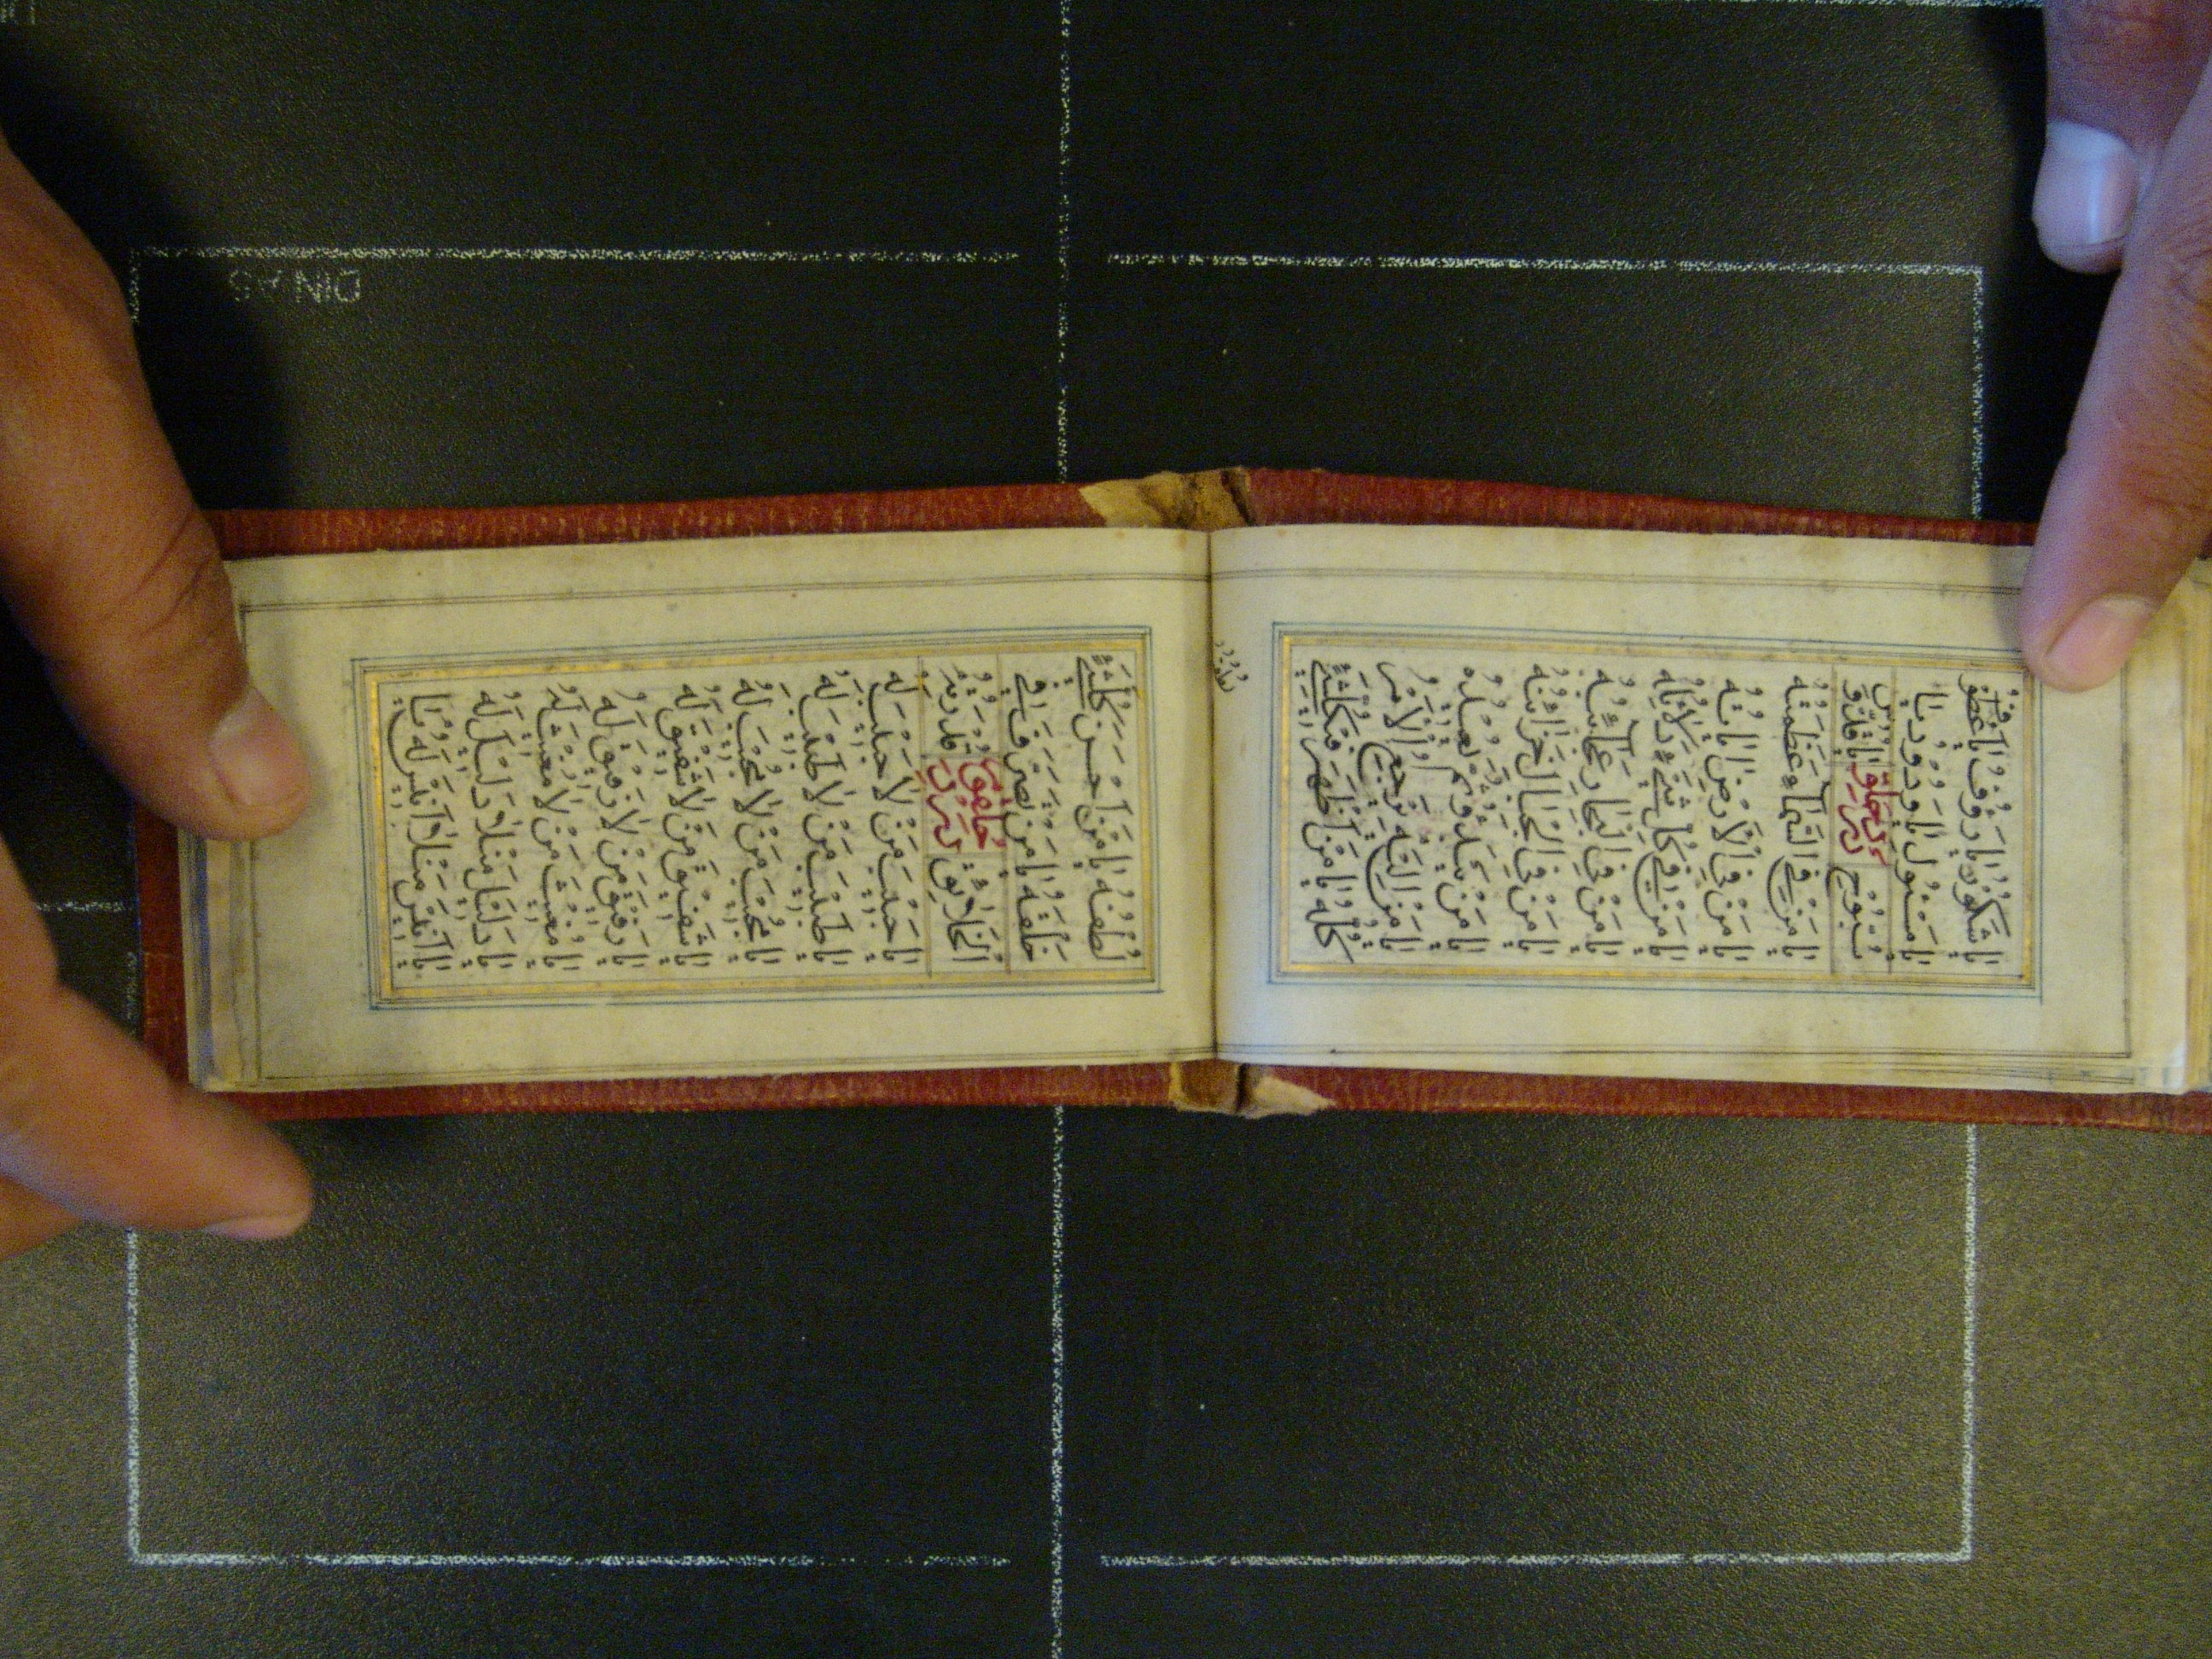 DIN A5
يا شكور يا رؤف يا عطوف
يا مسئول يا ودود يا
سبوح يا قدوس
يا من في السماء عظمته
يا من في الارض اياته
يا من في كل شيء دلائله
يا من في البحار عجائبه
يا من في الجبال خزائنه
يا من ثم يعيده
يا من اليه يرجع الامر
كله يا من اظهر في كل شيء
لطفه يا من احسن كل شيء
خلقه يا من تصرف في
الخلائق قدرته
يا حبيب من لا حبيب له
يا طبيب من لا طبيب له
يا مجيب من لا مجيب له
يا شفيق من لا شفيق له
يا رفيق من لا رفيق له
يا مغيث من لا مغيث له
يا دليل من لا دليل له
يا انيس من لا انيس له يا